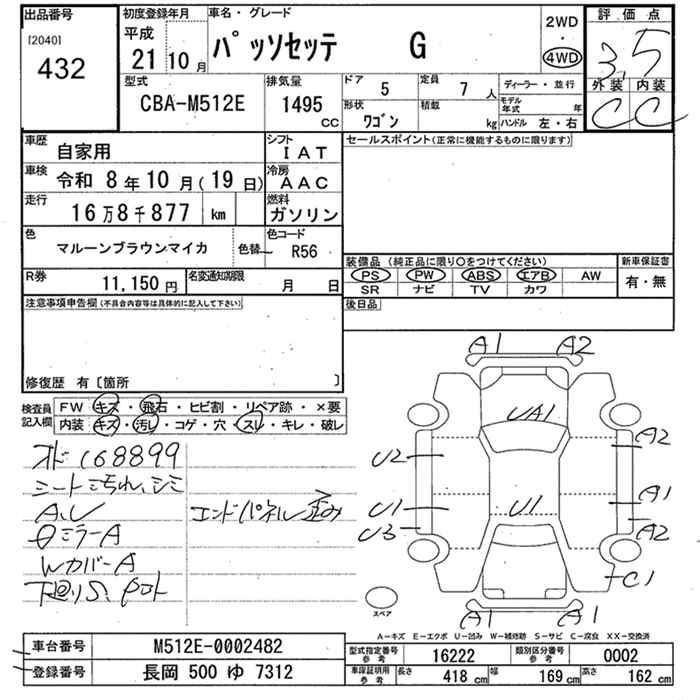 出品番号
[2040]
432
初度登録年月
平成
21 10 月
車名・グレード
パッソセッテ G
2WD
4WD
評価点
3.5
外装 内装
C C
型式
CBA-M512E
排気量
1495 CC
ドア 5
定員 7 人
形状 ワゴン
積載 kg
ディーラー・並行
モデル年式 年
ハンドル 左・右
車歴
自家用
シフト
IAT
車検
令和 8年10月(19日)
冷房
AAC
走行
16万8千877 km
燃料
ガソリン
色
マルーンブラウンマイカ
色替
色コード
R56
R券
11,150円
名変通知期限
月 日
セールスポイント(正常に機能するものに限ります)
装備品(純正品に限り○をつけてください)
PS PW ABS エアB AW
SR ナビ TV カワ
新車保証書
有・無
後日品
注意事項申告欄(不具合内容等は具体的に記入して下さい)
修復歴 有〔箇所 〕
検査員記入欄
FW キズ・飛石・ヒビ割・リペア跡・×要
内装 キズ・汚レ・コゲ・穴・スレ・キレ・破レ
オド168899
シート汚れ、シミ
A,U
エンドパネル歪み
ミラーA
WカバーA
下廻りS,
A1 A2
UA1
U2
A2
U1
U1
A1
U3
A2
C1
A1 A1
スペア
A-キズ E-エクボ U-凹み W-補修跡 S-サビ C-腐食 XX-交換済
車台番号
M512E-0002482
登録番号
長岡 500 ゆ 7312
型式指定番号 参考
16222
類別区分番号 参考
0002
車両証明用 参考
長さ 418 cm 幅 169 cm 高さ 162 cm